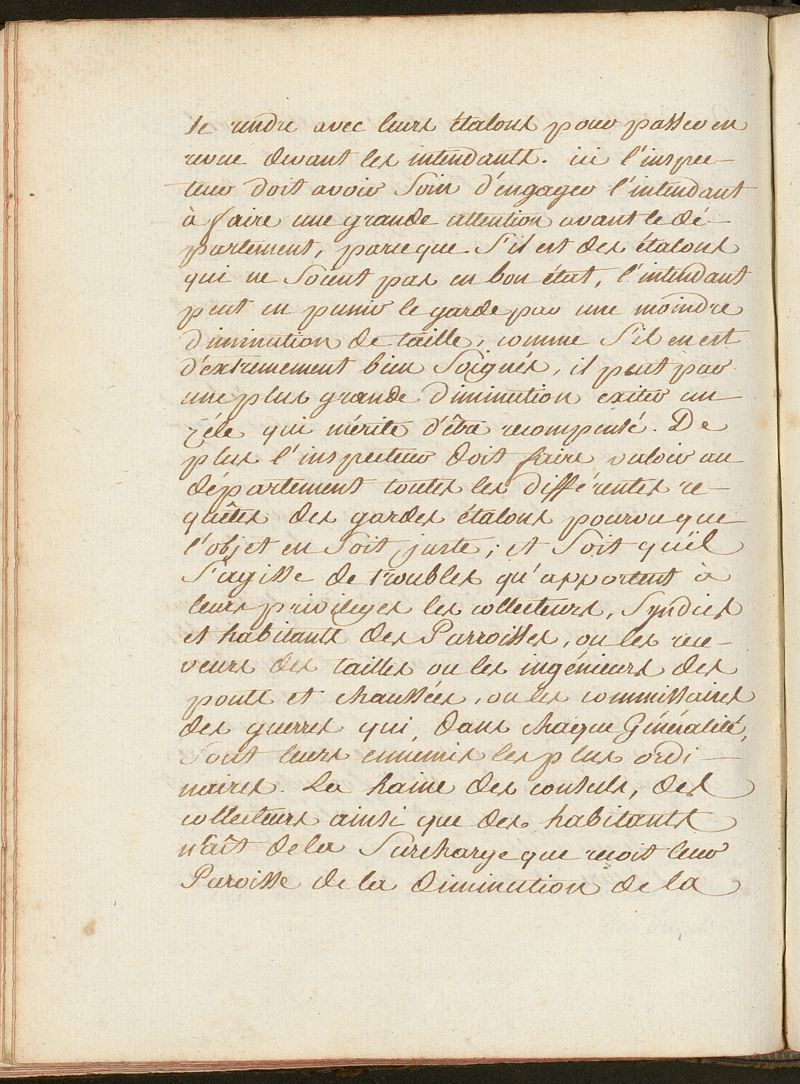 Se rendre avec leurs étalons pour passer en
revue devant les intendants. ici l'inspec-
teur doit avoir Soin d'engager l'intendant
à faire une grande attention avant le dé-
partement, parceque S'il est des étalons
qui ne Soient pas en bon état, l'intendant
peut en punir le garde par une moindre
Diminution de taille, comme S'il en est
d'extremement bien Soignés, il peut par
une plus grande Diminution exiter un
zéle qui mérite d'être recompensé. De
plus l'inspecteur doit faire valoir au
département toutes les différentes re-
quêtes des gardes étalons pourvu que
l'objet en Soit juste; et Soit qu'il
S'agisse de troubles qu'apportent à
leurs privileges les collecteurs, Syndics
et habitants des Parroisses, ou les rece-
veurs des tailles ou les ingénieurs des
ponts et chaussées, ou les commissaires
des guerres qui, dans chaque Généralité,
Sont leurs ennemis les plus ordi-
naires. La haine des consuls, des
collecteurs ainsi que des habitants
naît de la Surcharge que reçoit leur
Paroisse de la diminution de la